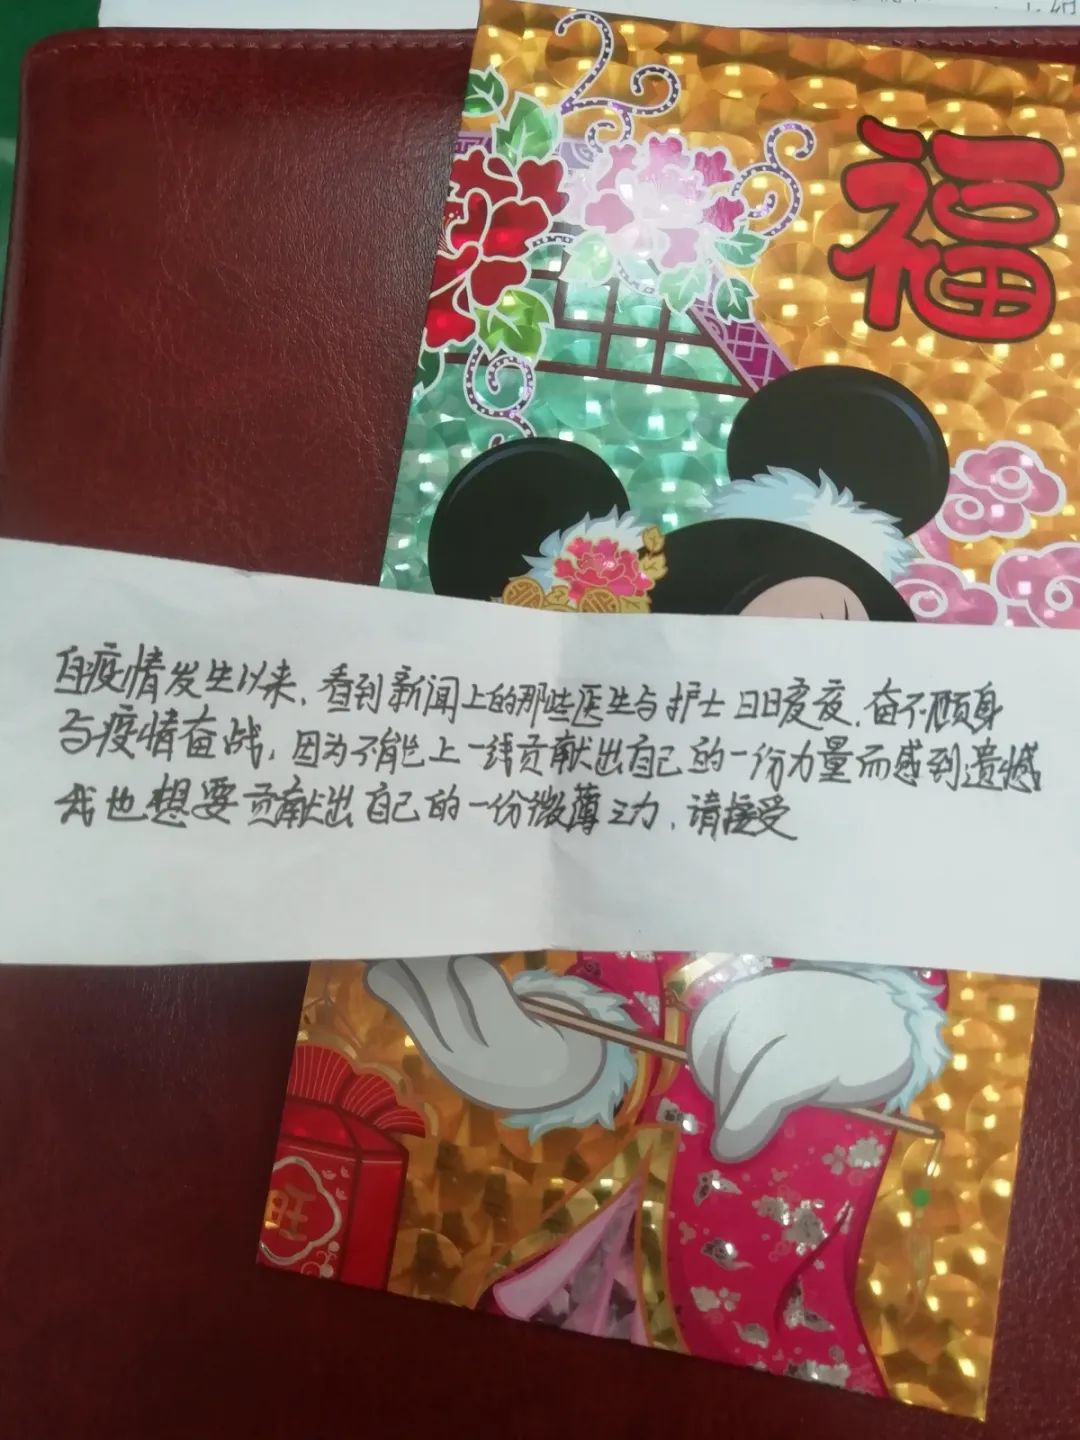 福
自疫情发生以来,看到新闻上的那些医生与护士日日夜夜,奋不顾身
与疫情奋战,因为不能上一线贡献出自己的一份力量而感到遗憾
我也想要贡献出自己的一份微薄之力,请接受
旺